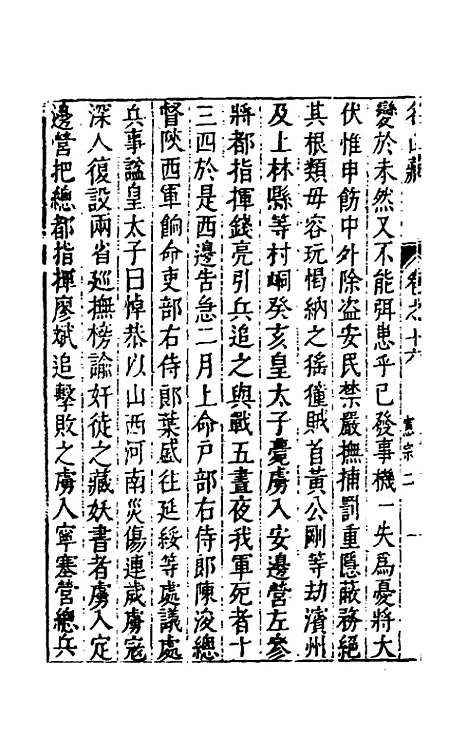 名山藏 卷之十六 憲宗二 一
變於未然又不能弭患乎已發事機一失爲憂將大
伏惟申飭中外除盜安民禁嚴撫捕罰重隱蔽務絕
其根類毋容玩愒納之猺獞賊首黃公剛等劫濱州
及上林縣等村峒癸亥皇太子薨虜入安邊營左參
將都指揮錢亮引兵追之與戰五晝夜我軍死者十
三四於是西邊告急二月上命戸部右侍郎陳浚總
督陝西軍餉命吏部右侍郎葉盛往延綏等處議處
兵事諡皇太子曰悼恭以山西河南災傷連歲虜寇
深入復設兩省廵撫榜諭奸徒之藏妖書者虜入定
邊營把總都指揮廖斌追擊敗之虜入寧塞營總兵